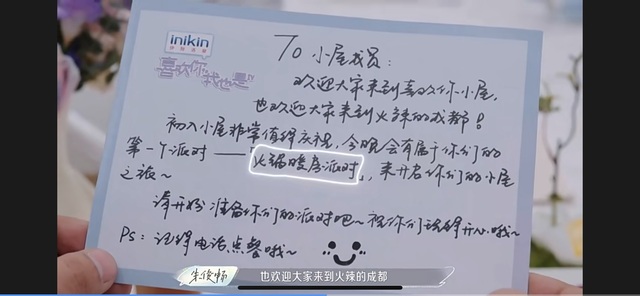 inikin
喜欢你
我也是
TO 小屋成员:
欢迎大家来到喜欢你小屋,
也欢迎大家来到火辣的成都!
初入小屋非常值得庆祝,今晚会有属于你们的
第一个派对——「火锅暖房派对」,来开启你们的小屋
之旅~
请开始准备你们的派对吧~祝你们玩得开心哦~
PS:记得电话点餐哦~
朱俊畅
也欢迎大家来到火辣的成都